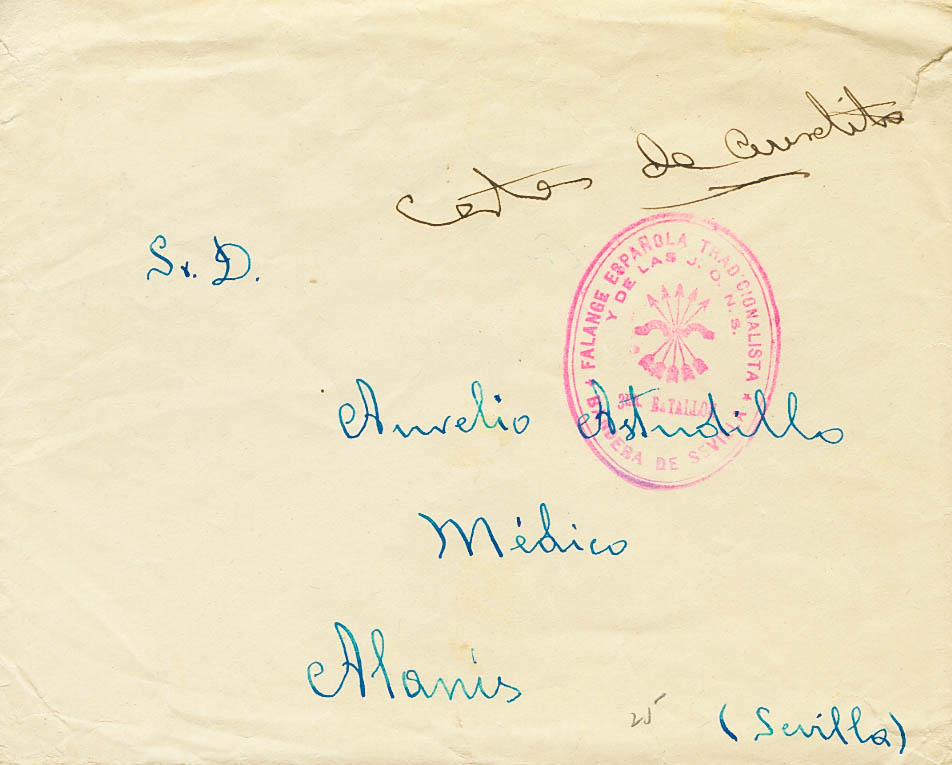 Cartas de
Sr. D.
★ FALANGE ESPAÑOLA TRADICIONALISTA ★
Y DE LAS J. O. N. S.
3ER. BATALLON
BANDERA DE SEVILLA
Aurelio Astudillo
Médico
Alanis
25
(Sevilla)